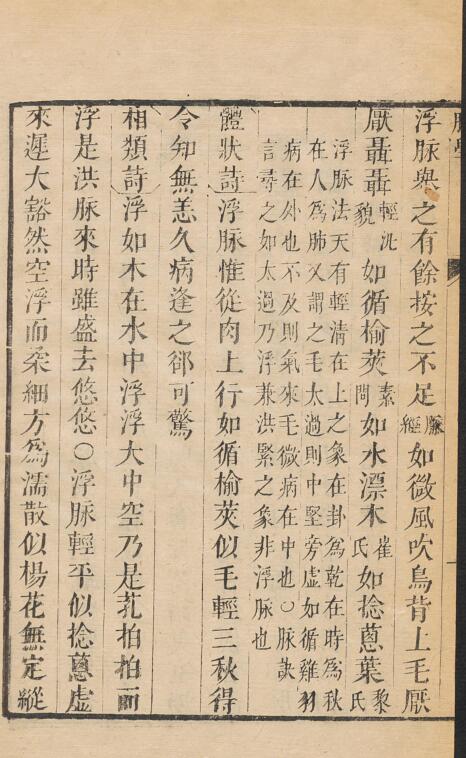 浮脉舉之有餘按之不足脉經如微風吹鳥背上毛厭
厭聶聶輕汎貌如循榆莢素問如水漂木崔氏如捻蔥葉黎氏
浮脉法天有輕清在上之象在卦爲乾在時爲秋
在人爲肺又謂之毛太過則中堅旁虛如循雞羽
病在外也不及則氣來毛微病在中也○脉訣
言尋之如太過乃浮兼洪緊之象非浮脉也
體狀詩浮脉惟從肉上行如循榆莢似毛輕三秋得
令知無恙久病逢之郤可驚
相類詩浮如木在水中浮浮大中空乃是芤拍拍而
浮是洪脉來時雖盛去悠悠○浮脉輕平似捻蔥虛
來遲大豁然空浮而柔細方爲濡散似楊花無定蹤